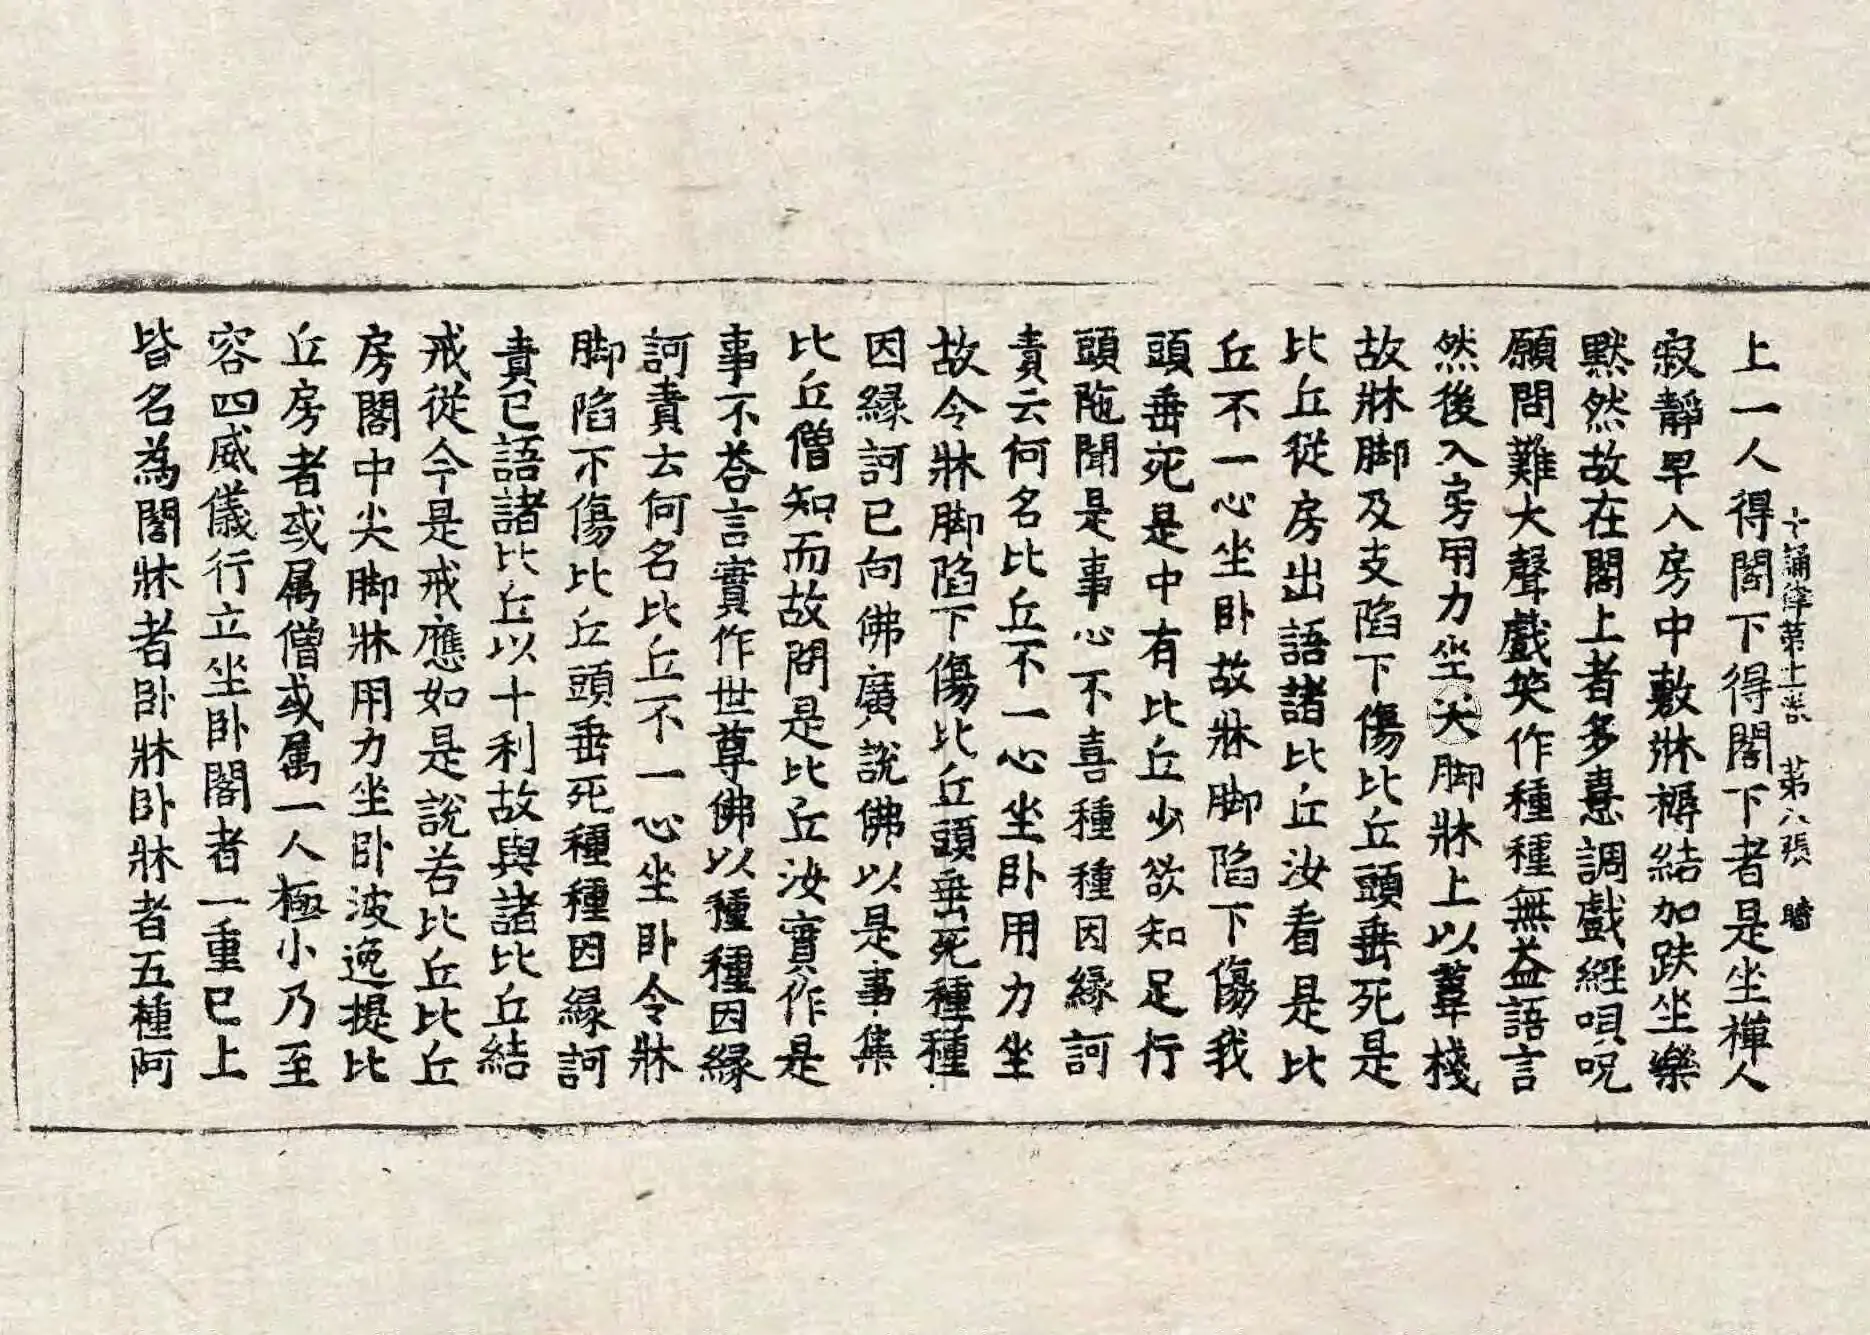 十誦律第十一卷　第八張　暗
上一人得閣下得閣下者是坐禪人
寂靜早入房中敷牀褥結加趺坐樂
黙然故在閣上者多憙調戲經唄呪
願問難大聲戲笑作種種無益語言
然後入房用力坐大脚牀上以葦棧
故牀脚及支陷下傷比丘頭垂死是
比丘從房出語諸比丘汝看是比
丘不一心坐卧故牀脚陷下傷我
頭垂死是中有比丘少欲知足行
頭陁聞是事心不喜種種因縁訶
責云何名比丘不一心坐卧用力坐
故令牀脚陷下傷比丘頭垂死種種
因縁訶已向佛廣說佛以是事集
比丘僧知而故問是比丘汝實作是
事不荅言實作世尊佛以種種因縁
訶責云何名比丘不一心坐卧令牀
脚陷下傷比丘頭垂死種種因縁訶
責已語諸比丘以十利故與諸比丘結
戒從今是戒應如是說若比丘比丘
房閣中尖脚牀用力坐卧波逸提比
丘房者或属僧或属一人極小乃至
容四威儀行立坐卧閣者一重已上
皆名為閣牀者卧牀卧牀者五種阿